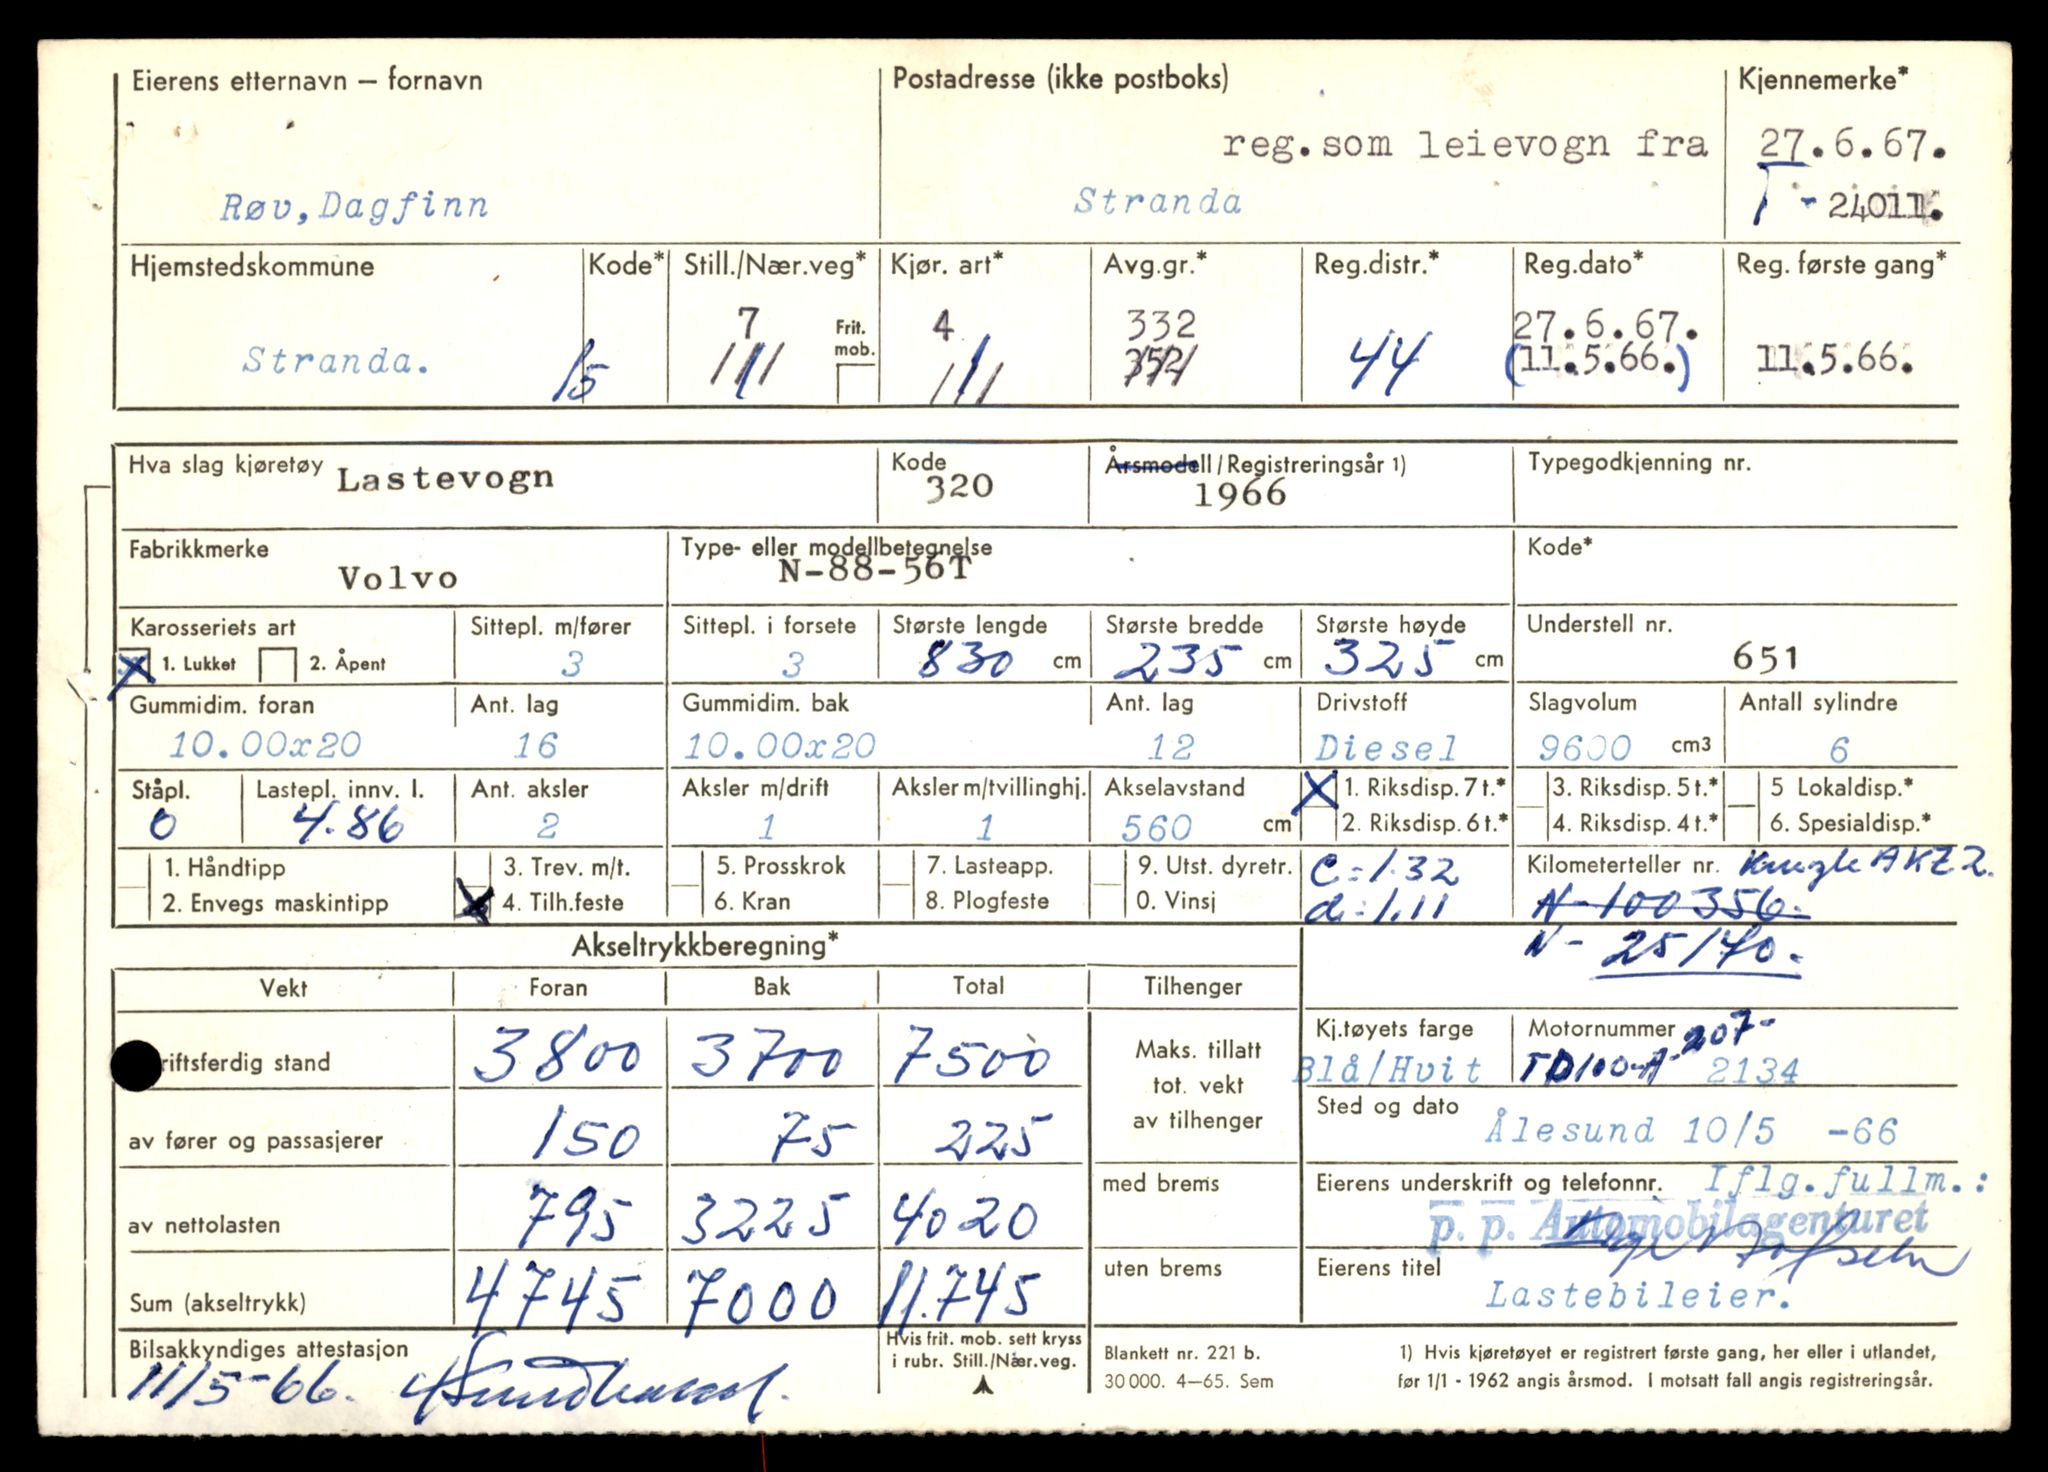 Eierens etternavn — fornavn
Postadresse (ikke postboks)
Kjennemerke*
reg.som leievogn fra 27.6.67.
Røv, Dagfinn
Stranda
T - 24011.
Hjemstedskommune
Kode*
Still./Nær.veg*
Kjør. art*
Avg.gr.*
Reg.distr.*
Reg.dato*
Reg. første gang*
7
Frit. mob.
4
332
27.6.67.
Stranda.
15
352
44
(11.5.66.)
11.5.66.
Hva slag kjøretøy
Lastevogn
Kode
320
Årsmodell/Registreringsår 1)
1966
Typegodkjenning nr.
Fabrikkmerke
Volvo
Type- eller modellbetegnelse
N-88-56T
Kode*
Karosseriets art
Sittepl. m/fører
Sittepl. i forsete
Største lengde
Største bredde
Største høyde
Understell nr.
X 1. Lukket
2. Åpent
3
3
830 cm
235 cm
325 cm
651
Gummidim. foran
Ant. lag
Gummidim. bak
Ant. lag
Drivstoff
Slagvolum
Antall sylindre
10.00x20
16
10.00x20
12
Diesel
9600 cm3
6
Ståpl.
Lastepl. innv. l.
Ant. aksler
Aksler m/drift
Aksler m/tvillinghj.
Akselavstand
X 1. Riksdisp. 7 t.*
3. Riksdisp. 5 t.*
5 Lokaldisp.*
0
4.86
2
1
1
560 cm
2. Riksdisp. 6 t.*
4. Riksdisp. 4 t.*
6. Spesialdisp.*
1. Håndtipp
3. Trev. m/t.
5. Prosskrok
7. Lasteapp.
9. Utst. dyretr.
C = 1.32
Kilometerteller nr. Kinzle AKZ 2.
2. Envegs maskintipp
X 4. Tilh.feste
6. Kran
8. Plogfeste
0. Vinsj
d = 1.11
N-100356.
N- 25140.
Akseltrykkberegning*
Vekt
Foran
Bak
Total
Tilhenger
riftsferdig stand
3800
3700
7500
Maks. tillatt
tot. vekt
av tilhenger
Kj.tøyets farge
Blå/Hvit
Motornummer
TD100-A-207-
2134
av fører og passasjerer
150
75
225
Sted og dato
Ålesund 10/5 -66
av nettolasten
795
3225
4020
med brems
Eierens underskrift og telefonnr. Iflg.fullm.:
p. p. Automobilagenturet
Sum (akseltrykk)
4745
7000
11.745
uten brems
Eierens titel
Lastebileier.
Bilsakkyndiges attestasjon
11/5-66.
Hvis frit. mob. sett kryss
i rubr. Still./Nær.veg.
Blankett nr. 221 b.
30 000. 4—65. Sem
1) Hvis kjøretøyet er registrert første gang, her eller i utlandet,
før 1/1 - 1962 angis årsmod. I motsatt fall angis registreringsår.